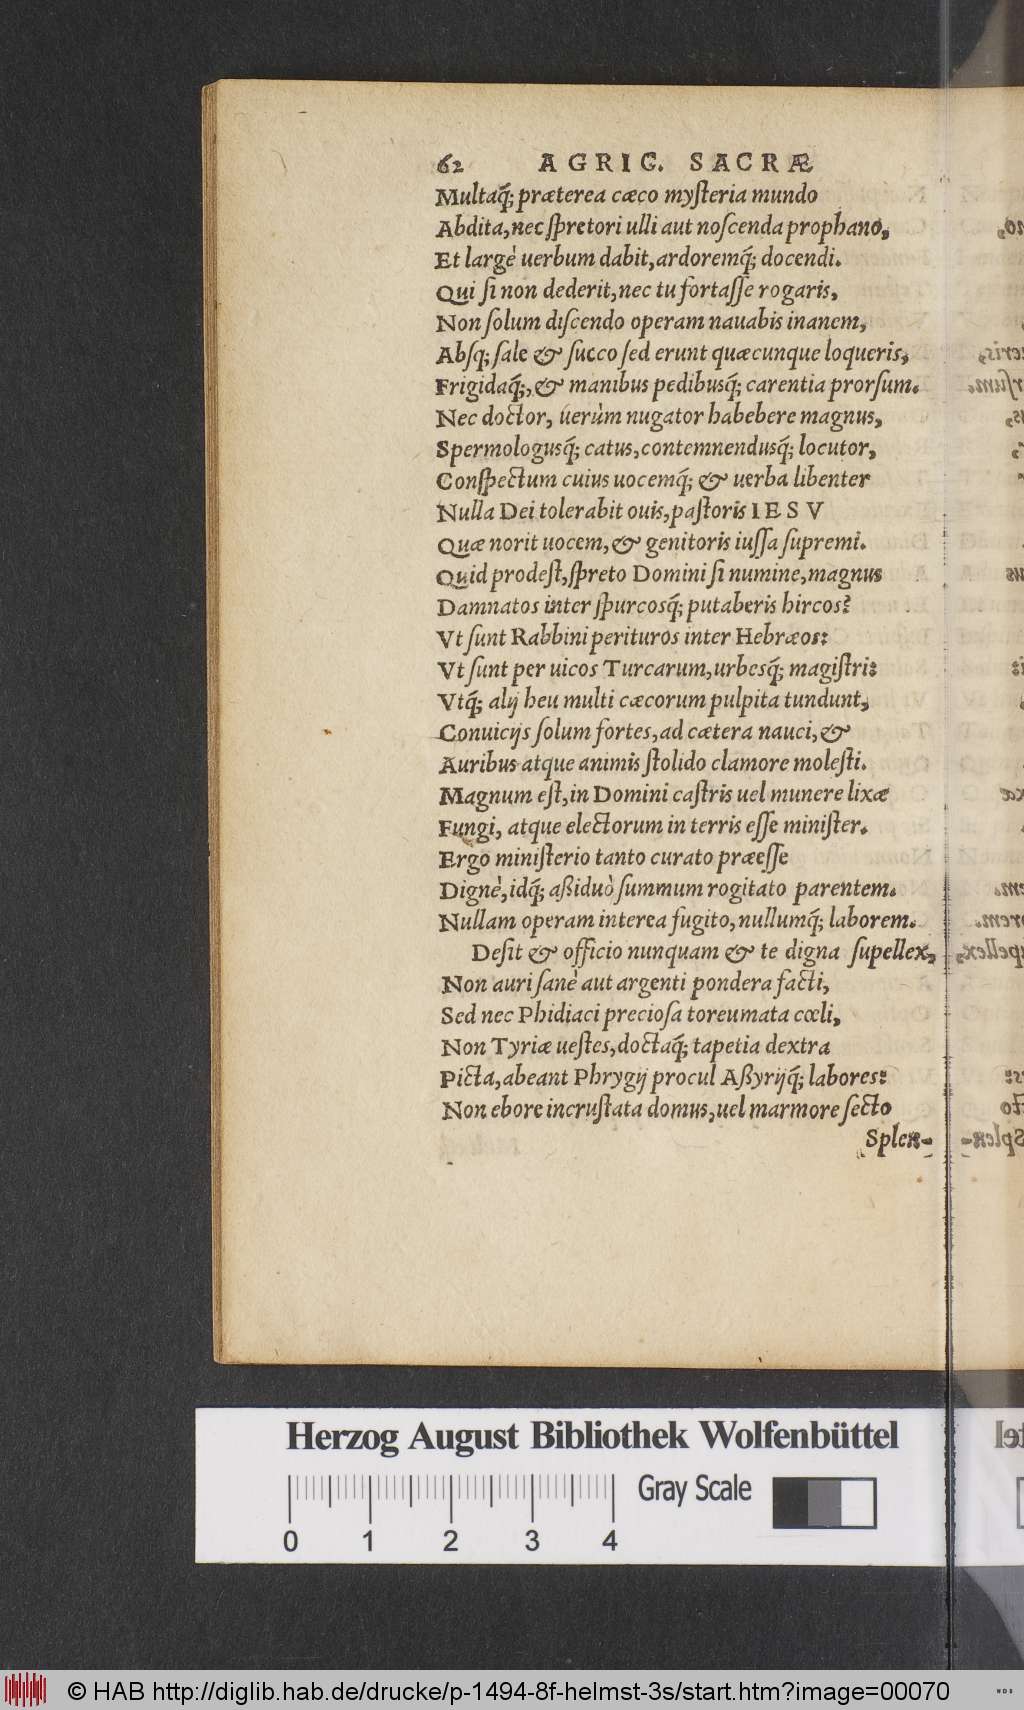 62 AGRIC. SACRÆ
Multaq́; præterea cæco myſteria mundo
Abdita, nec ſpretori ulli aut noſcenda prophano,
Et largè uerbum dabit, ardoremq́; docendi.
Qui ſi non dederit, nec tu fortaſſe rogaris,
Non ſolum diſcendo operam nauabis inanem,
Abſq; ſale & ſucco ſed erunt quæcunque loqueris,
Frigidaq́;, & manibus pedibusq́; carentia prorſum.
Nec doctor, uerùm nugator habebere magnus,
Spermologusq́; catus, contemnendusq́; locutor,
Conſpectum cuius uocemq́; & uerba libenter
Nulla Dei tolerabit ouis, paſtoris IESV
Quæ norit uocem, & genitoris iuſſa ſupremi.
Quid prodeſt, ſpreto Domini ſi numine, magnus
Damnatos inter ſpurcosq́; putaberis hircos?
Vt ſunt Rabbini perituros inter Hebræos:
Vt ſunt per uicos Turcarum, urbesq́; magiſtri:
Vtq́; alij heu multi cæcorum pulpita tundunt,
Conuicijs ſolum fortes, ad cætera nauci, &
Auribus atque animis ſtolido clamore moleſti.
Magnum eſt, in Domini caſtris uel munere lixæ
Fungi, atque electorum in terris eſſe miniſter.
Ergo miniſterio tanto curato præeſſe
Dignè, idq́; aßiduò ſummum rogitato parentem.
Nullam operam interea fugito, nullumq́; laborem.
Deſit & officio nunquam & te digna ſupellex,
Non auri ſanè aut argenti pondera facti,
Sed nec Phidiaci precioſa toreumata cœli,
Non Tyriæ ueſtes, doctaq́; tapetia dextra
Picta, abeant Phrygij procul Aßyrijq́; labores:
Non ebore incruſtata domus, uel marmore ſecto
Splen-
Herzog August Bibliothek Wolfenbüttel
Gray Scale
0 1 2 3 4
© HAB http://diglib.hab.de/drucke/p-1494-8f-helmst-3s/start.htm?image=00070